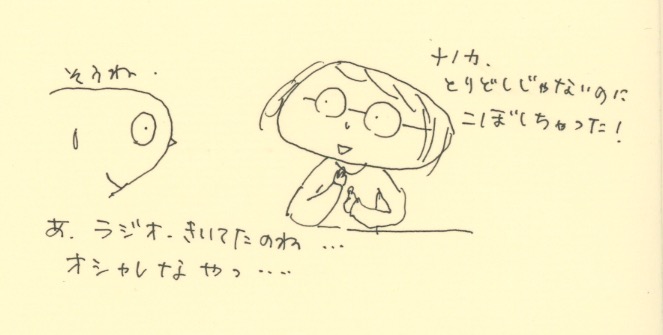 そうね.
ナノカ.
とりどしじゃないのに
こぼしちゃった!
あ. ラジオーきいてたのね...
オシャレなやっ....